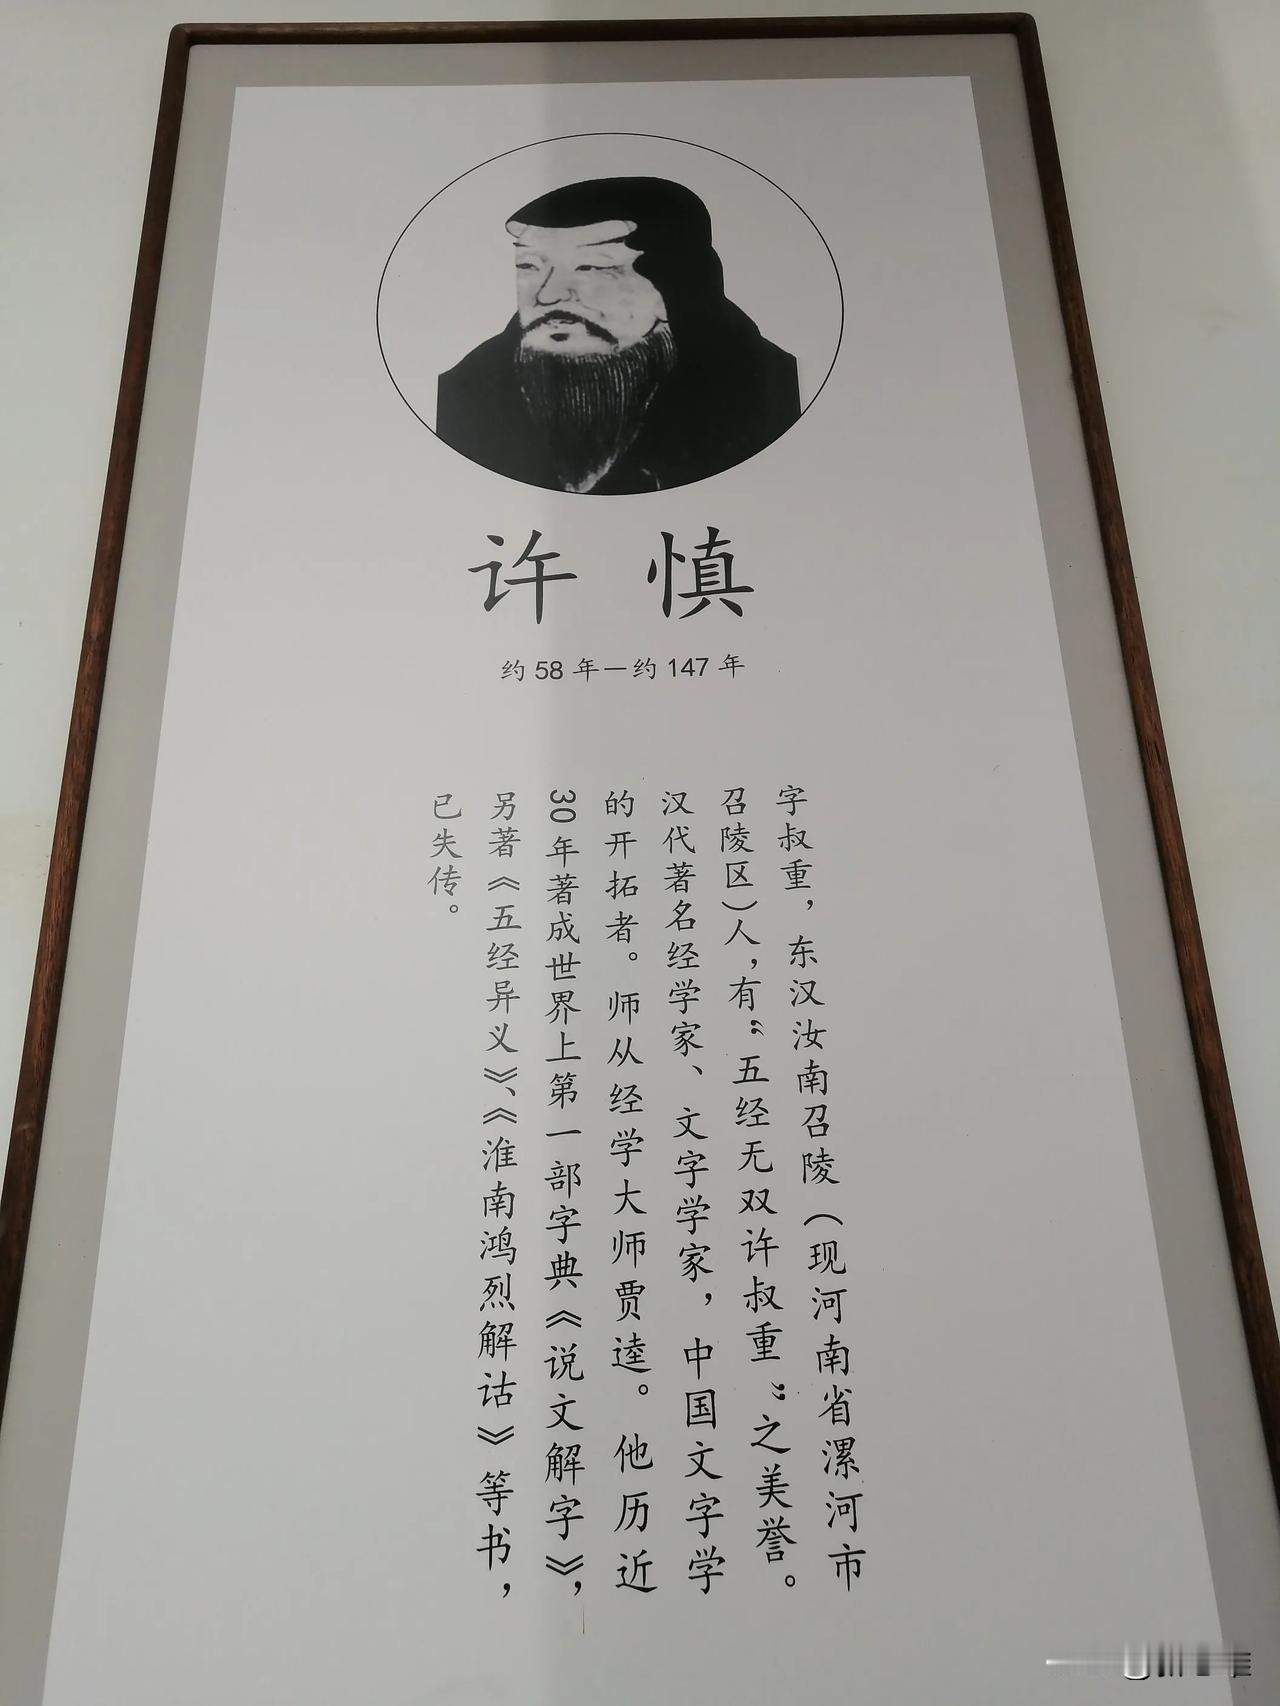 许慎
约58年—约147年
字叔重，东汉汝南召陵（现河南省漯河市
召陵区）人，有“五经无双许叔重”之美誉。
汉代著名经学家、文字学家，中国文字学
的开拓者。师从经学大师贾逵。他历近
30年著成世界上第一部字典《说文解字》，
另著《五经异义》、《淮南鸿烈解诂》等书，
已失传。